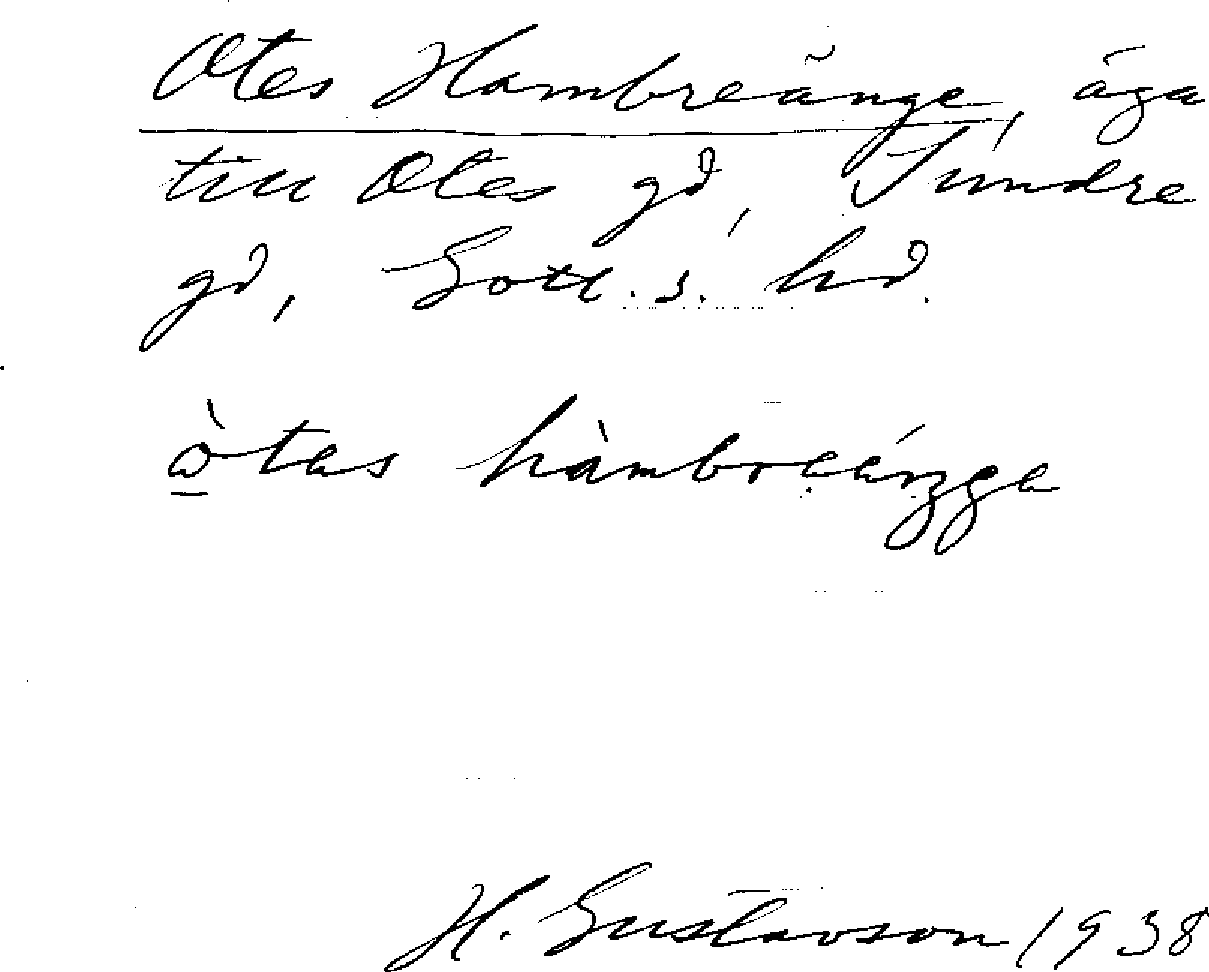 Otes Hambreänge, äga
till Otes gd, Sundre
gd, Gotl. s. hd.
òtas hàmbreáŋge
H. Gustavson 1938